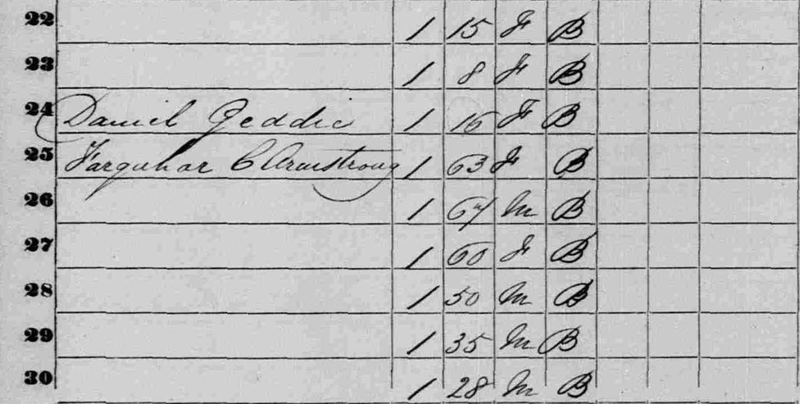 22 1 15 F B
23 1 8 F B
24 Daniel Geddie 1 16 F B
25 Farquhar C Armstrong 1 63 F B
26 1 67 M B
27 1 60 F B
28 1 50 M B
29 1 35 M B
30 1 28 M B